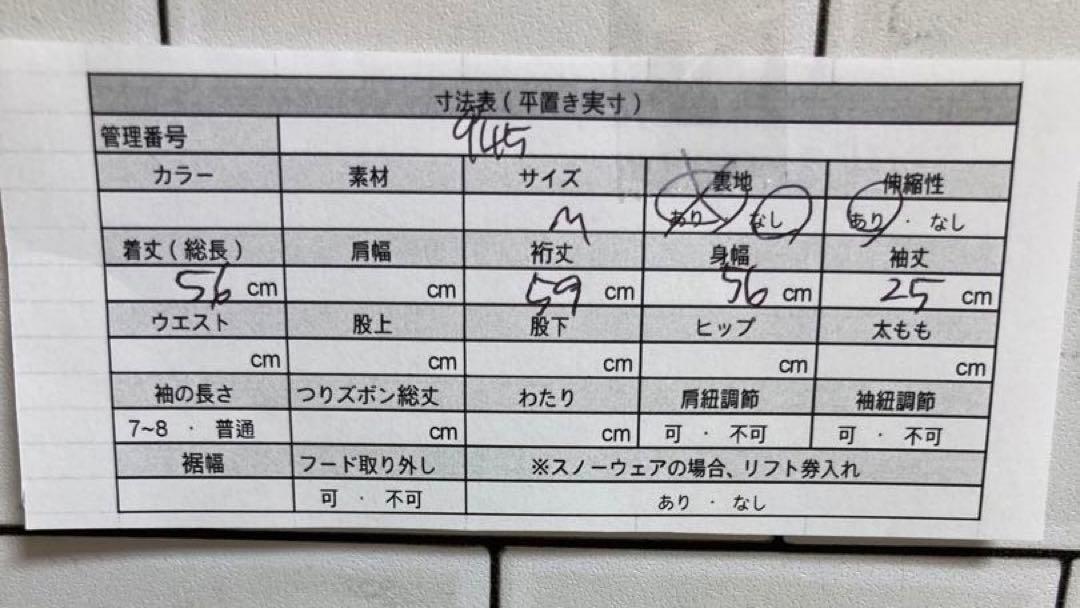 寸法表(平置き実寸)
管理番号 945
カラー 素材 サイズ 裏地 伸縮性
M あり なし あり ・ なし
着丈(総長) 肩幅 裄丈 身幅 袖丈
56 cm cm 59 cm 56 cm 25 cm
ウエスト 股上 股下 ヒップ 太もも
cm cm cm cm cm
袖の長さ つりズボン総丈 わたり 肩紐調節 袖紐調節
7~8 ・ 普通 cm cm 可 ・ 不可 可 ・ 不可
裾幅 フード取り外し ※スノーウェアの場合、リフト券入れ
可 ・ 不可 あり ・ なし